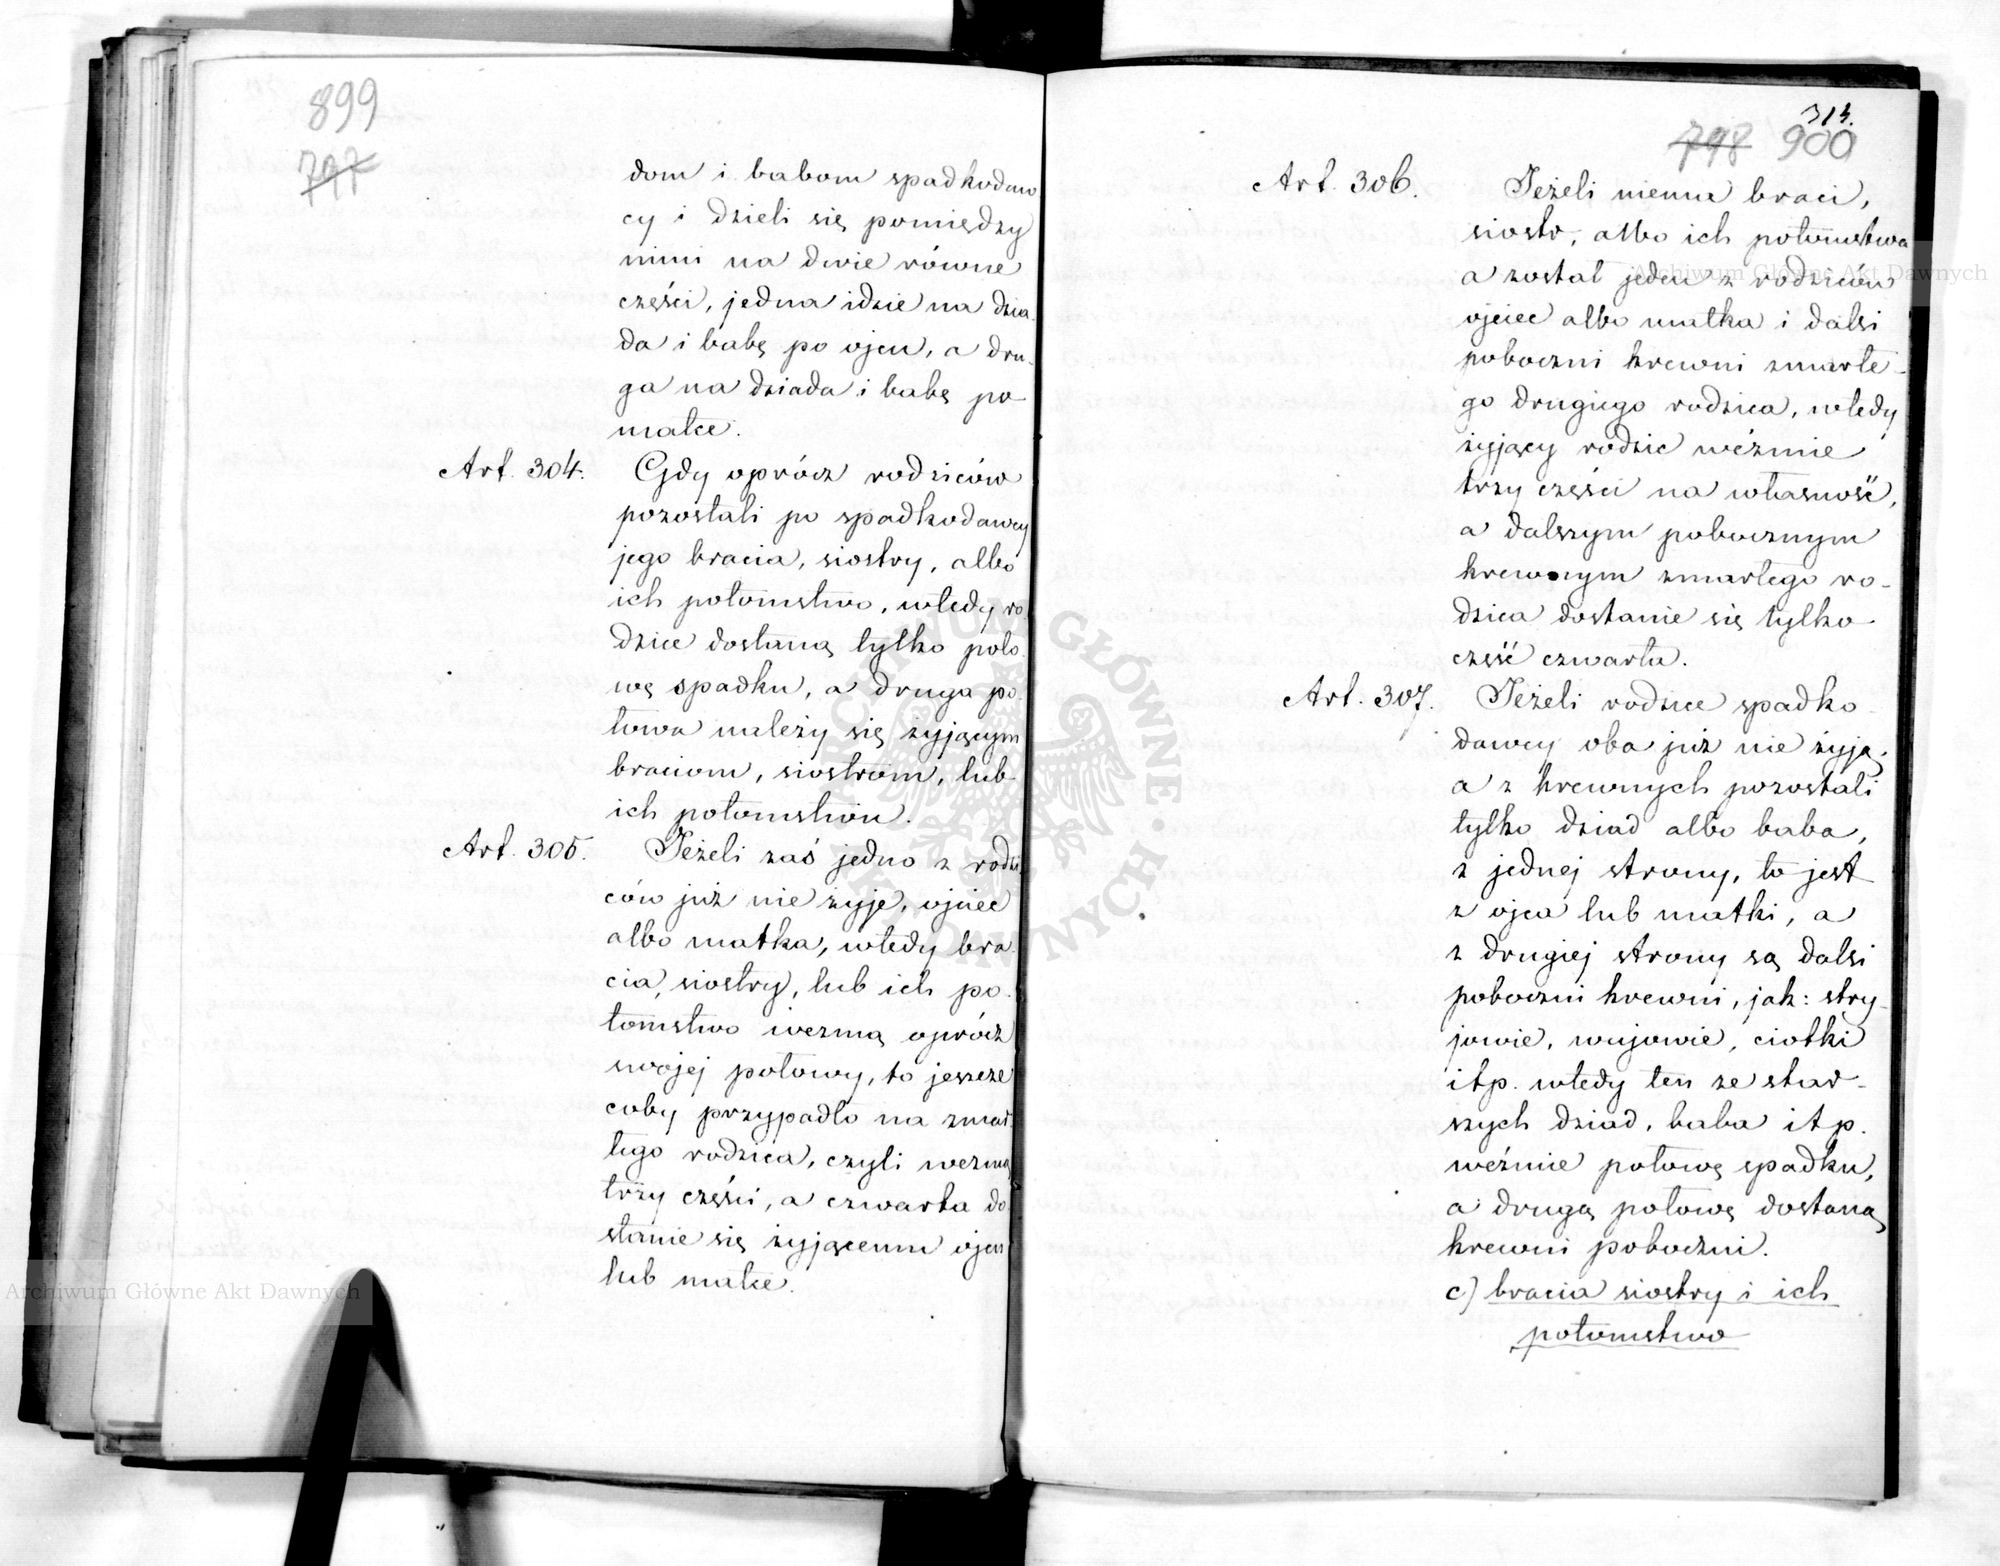 899
797
dom i babom spadkodaw
cy i dzieli się pomiędzy
nimi na dwie równe
części, jedna idzie na dzia-
da i babę po ojcu, a dru-
ga na dziada i babę po
matce.
Art. 304. Gdy oprócz rodziców
pozostali po spadkodawcy
jego bracia, siostry, albo
ich potomstwo, wtedy ro-
dzice dostaną tylko poło-
wę spadku, a druga po-
łowa należy się żyjącym
braciom, siostrom, lub
ich potomstwu.
Art. 305. Jeżeli zaś jedno z rodzi
ców już nie żyje, ojciec
albo matka, wtedy bra-
cia, siostry, lub ich po-
tomstwo wezmą oprócz
swojej połowy, to jeszcze
coby przypadło na zmar-
łego rodzica, czyli wezmą
trzy części, a czwarta do-
stanie się żyjącemu ojcu
lub matce.
313.
798 900
Art. 306. Jeżeli niema braci,
siostr, albo ich potomstwa
a został jeden z rodziców
ojciec albo matka i dalsi
poboczni krewni zmarłe-
go drugiego rodzica, wtedy
żyjący rodzic weźmie
trzy części na własność,
a dalszym pobocznym
krewnym zmarłego ro-
dzica dostanie się tylko
część czwarta.
Art. 307. Jeżeli rodzice spadko-
dawcy oba już nie żyją,
a z krewnych pozostali
tylko dziad albo baba,
z jednej strony, to jest
z ojca lub matki, a
z drugiej strony są dalsi
poboczni krewni, jak: stry-
jowie, wujowie, ciotki
itp. wtedy ten ze star-
szych dziad, baba itp.
weźmie połowę spadku,
a drugą połowę dostaną
krewni poboczni.
c) bracia siostry i ich
potomstwo
Archiwum Główne Akt Dawnych
Archiwum Główne Akt Dawnych
ARCHIWUM GŁÓWNE AKT DAWNYCH